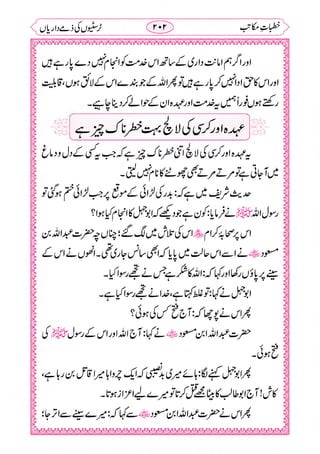 خطباتِ مکاتب
۲۰۲
ٹرسٹیوں کی ذمے داریاں
اور اگر ہم امانت داری کے ساتھ اس خدمت کو انجام نہیں دے پارہے ہیں
اور اس کا حق ادا نہیں کر پارہے ہیں تو پھر وہ بندے جو اس کے لائق ہوں، قابلیت
رکھتے ہوں فوراً ہمیں یہ خدمت اور عہدہ ان کے حوالے کر دینا چاہیے۔
عہدہ اور کرسی کی لالچ بہت خطرناک چیز ہے
یہ عہدہ اور کرسی کی لالچ اتنی خطرناک چیز ہے کہ جب یہ کسی کے دل و دماغ
میں آجاتی ہے تو مرتے مرتے بھی چھوٹنے کا نام نہیں لیتی۔
حدیث شریف میں ہے کہ: بدر کی لڑائی کے موقع پر جب لڑائی ختم ہوگئی تو
رسول اللہ ﷺ نے فرمایا: کون ہے جو دیکھے کہ ابوجہل کا کیا انجام ہوا؟
اس پر صحابہ کرام ؓ اس کی تلاش میں لگ گئے؛ چناں چہ حضرت عبداللہ بن
مسعود ؓ نے اسے اس حالت میں پایا کہ ابھی سانس جاری تھی۔ انھوں نے اس کے
سینے پر پاؤں رکھا اور کہا: اللہ کا شکر ہے جس نے تجھے رسوا کیا۔
ابوجہل نے کہا: تو غلط کہتا ہے، خدا نے تجھے رسوا کیا ہے۔
پھر اس نے پوچھا کہ: آج فتح کس کی ہوئی؟
حضرت عبداللہ ابن مسعود ؓ نے کہا: آج اللہ اور اس کے رسول ﷺ کی
فتح ہوئی۔
پھر ابوجہل کہنے لگا: ہائے میری بدنصیبی کہ ایک چرواہا میرا قاتل بن رہا ہے،
کاش! آج ابوطالب کا بیٹا مجھے قتل کرتا تو میرے لیے اعزاز ہوتا۔
پھر اس نے حضرت عبداللہ ابن مسعود ؓ سے کہا کہ: میرے سینے سے اتر جا؛